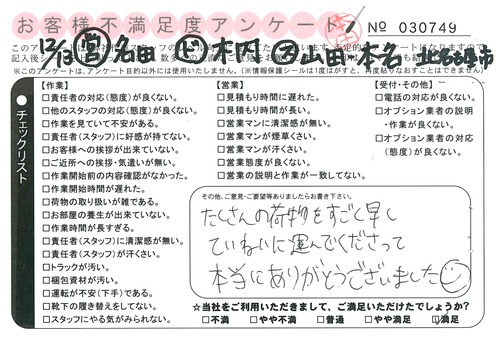 お客様不満足度アンケート
№ 030749
12/13 営 名田 ド 木内 ア 山田 本名 北名古屋市
※このアンケートは、アンケート目的以外には使用いたしません。(※情報保護シールは1度はがすと、再度貼りなおすことはできません)
チェックリスト
【作業】
□責任者の対応(態度)が良くない。
□他のスタッフの対応(態度)が良くない。
□作業を見ていて不安がある。
□責任者(スタッフ)に好感が持てない。
□お客様への挨拶が出来ていない。
□ご近所への挨拶・気遣いが無い。
□作業開始前の内容確認がなかった。
□作業開始時間が遅れた。
□荷物の取り扱いが雑である。
□お部屋の養生が出来ていない。
□作業時間が長すぎる。
□責任者(スタッフ)に清潔感が無い。
□責任者(スタッフ)が汗くさい。
□トラックが汚い。
□梱包資材が汚い。
□運転が不安(下手)である。
□靴下の履き替えをしてない。
□スタッフにやる気がみられない。
【営業】
□見積もり時間に遅れた。
□見積もり時間が長い。
□営業マンに清潔感が無い。
□営業マンが煙草くさい。
□営業マンが汗くさい。
□営業態度が良くない。
□営業の説明と作業が一致してない。
【受付・その他】
□電話の対応が良くない。
□オプション業者の説明・作業が良くない。
□オプション業者の対応(態度)が良くない。
その他、ご意見・ご要望等ありましたらお書き下さい。
たくさんの荷物をすごく早く
ていねいに運んでくださって
本当にありがとうございました
☆当社をご利用いただきまして、ご満足いただけたでしょうか?
□不満 □やや不満 □普通 □やや満足 □満足